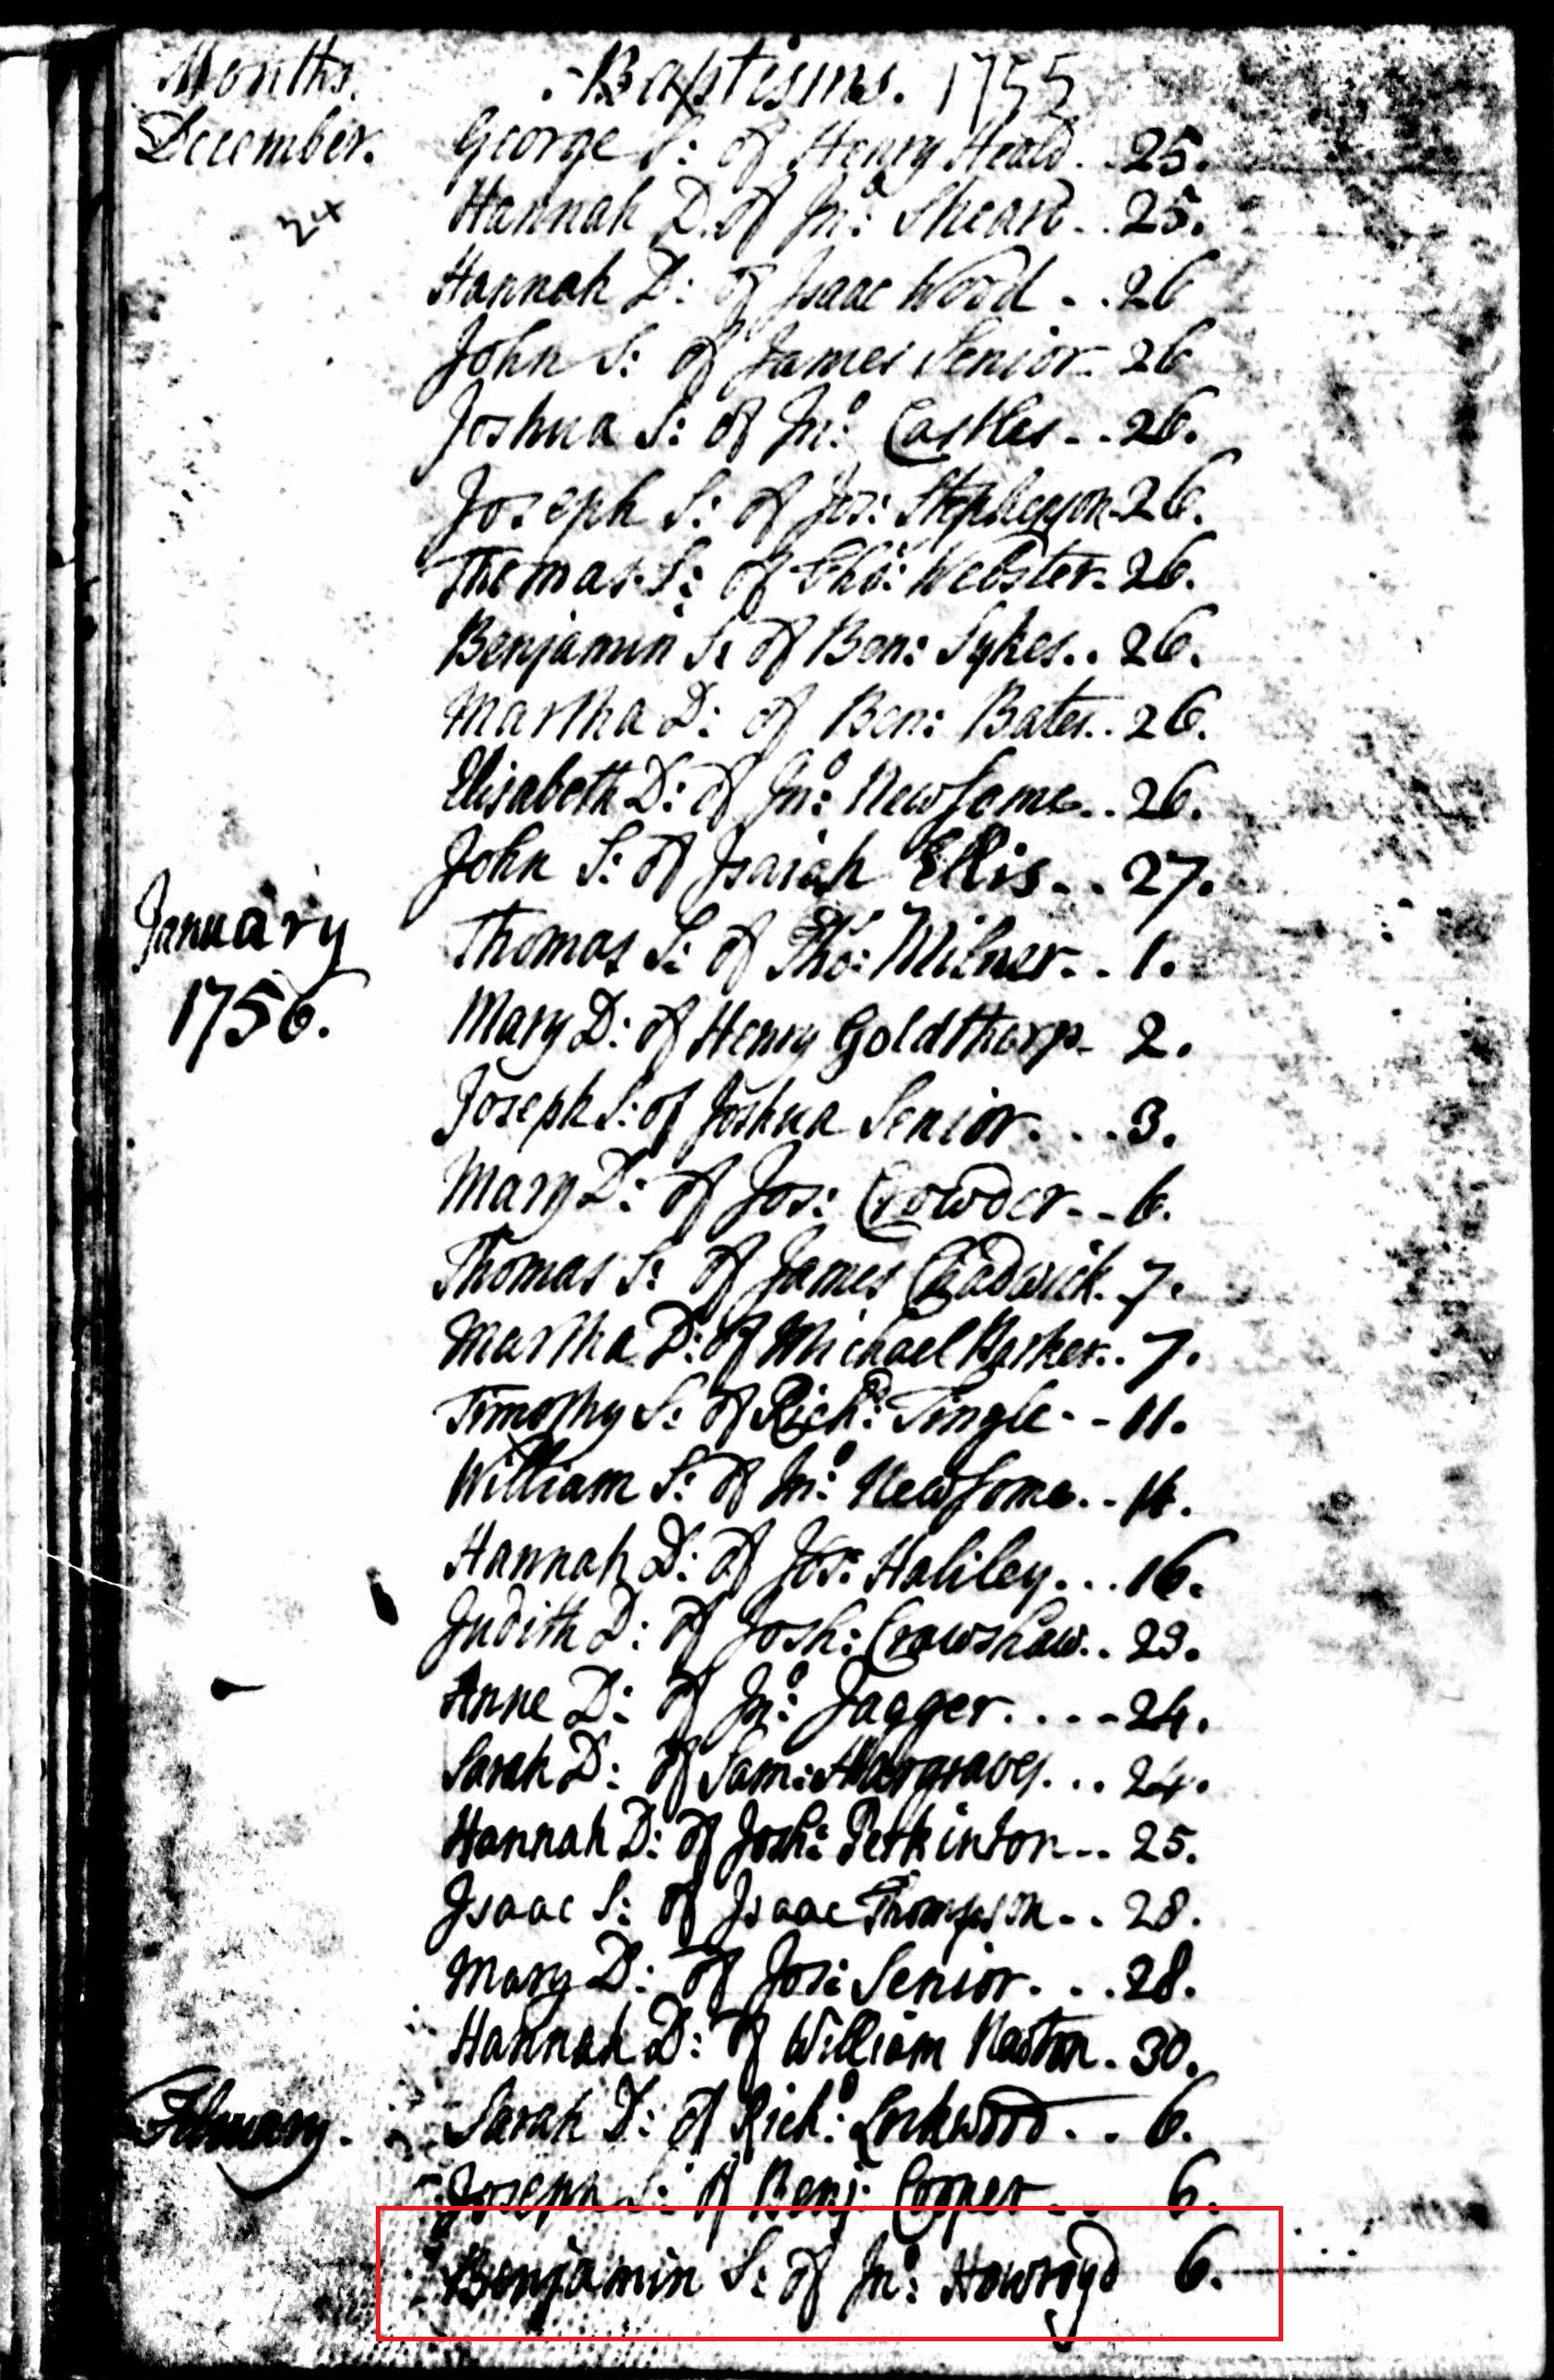 Months. Baptisms. 1755
December. George S: of Henry Heald. . 25.
Hannah D. of Jno: Sheard. . 25.
Hannah D: of Isaac Wood - . 26
John S: of James Senior - 26
Joshua S: of Jno: Castles - . 26.
Joseph S: of Jos: Stephenson - 26.
Thomas S: of Tho: Webster - 26.
Benjamin S: of Ben: Sykes. . 26.
Martha D: of Ben: Bates. . 26.
Elisabeth D: of Jno: Newsome. . 26.
John S: of Isaiah Ellis. . 27.
January Thomas S: of Tho: Milner. . 1.
1756. Mary D: of Henry Goldthorp - 2.
Joseph S: of Joshua Senior. . . 3.
Mary D: of Jos: Crowder - - 6.
Thomas S: of James Chadwick. 7.
Martha D: of Michael Parker. . 7.
Timothy S: of Richd: Tingle - - 11.
William S: of Jno: Newsome. . 14.
Hannah D: of Jos: Haliley. . . 16.
Judith D: of Josh: Crawshaw. . 23.
Anne D: of Jno: Jagger. . . . 24.
Sarah D: of Sam: Hargraves. . . 24.
Hannah D: of Josh: - - 25.
Isaac S: of Isaac Thompson - . 28.
Mary D: of Jos: Senior. . . 28.
Hannah D: of William . 30.
February. Sarah D: of Richd: Lockwood. . 6.
Joseph S: of Benj: Cooper - . 6.
Benjamin S: of Jno: Howroyd 6.